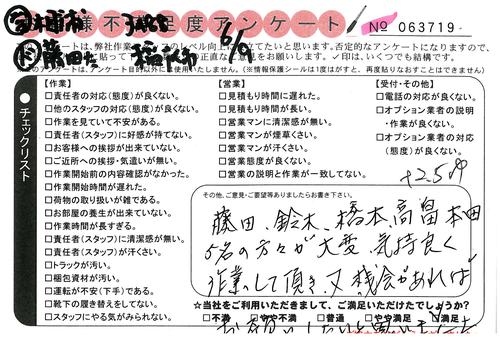 お客様不満足度アンケート
6/9
№ 063719
トは、弊社作業 レベル向上に 立てたいと思います。否定的なアンケートになりますので、
貼って 正直な意見をお願いします。✓印は、いくつでも結構です。
アンケートは、アンケート目的以外には使用いたしません。(※情報保護シールは1度はがすと、再度貼りなおすことはできません)
チェックリスト
【作業】
□責任者の対応(態度)が良くない。
□他のスタッフの対応(態度)が良くない。
□作業を見ていて不安がある。
□責任者(スタッフ)に好感が持てない。
□お客様への挨拶が出来ていない。
□ご近所への挨拶・気遣いが無い。
□作業開始前の内容確認がなかった。
□作業開始時間が遅れた。
□荷物の取り扱いが雑である。
□お部屋の養生が出来ていない。
□作業時間が長すぎる。
□責任者(スタッフ)に清潔感が無い。
□責任者(スタッフ)が汗くさい。
□トラックが汚い。
□梱包資材が汚い。
□運転が不安(下手)である。
□靴下の履き替えをしてない。
□スタッフにやる気がみられない。
【営業】
□見積もり時間に遅れた。
□見積もり時間が長い。
□営業マンに清潔感が無い。
□営業マンが煙草くさい。
□営業マンが汗くさい。
□営業態度が良くない。
□営業の説明と作業が一致してない。
【受付・その他】
□電話の対応が良くない。
□オプション業者の説明
・作業が良くない。
□オプション業者の対応
(態度)が良くない。
その他、ご意見・ご要望等ありましたらお書き下さい。
藤田、鈴木、橋本、高畠、本田
5名の方々が大変気持良く
作業して頂き、又機会があれば
お願いしたいと思います
☆当社をご利用いただきまして、ご満足いただけたでしょうか?
□不満 □やや不満 □普通 □やや満足 □満足